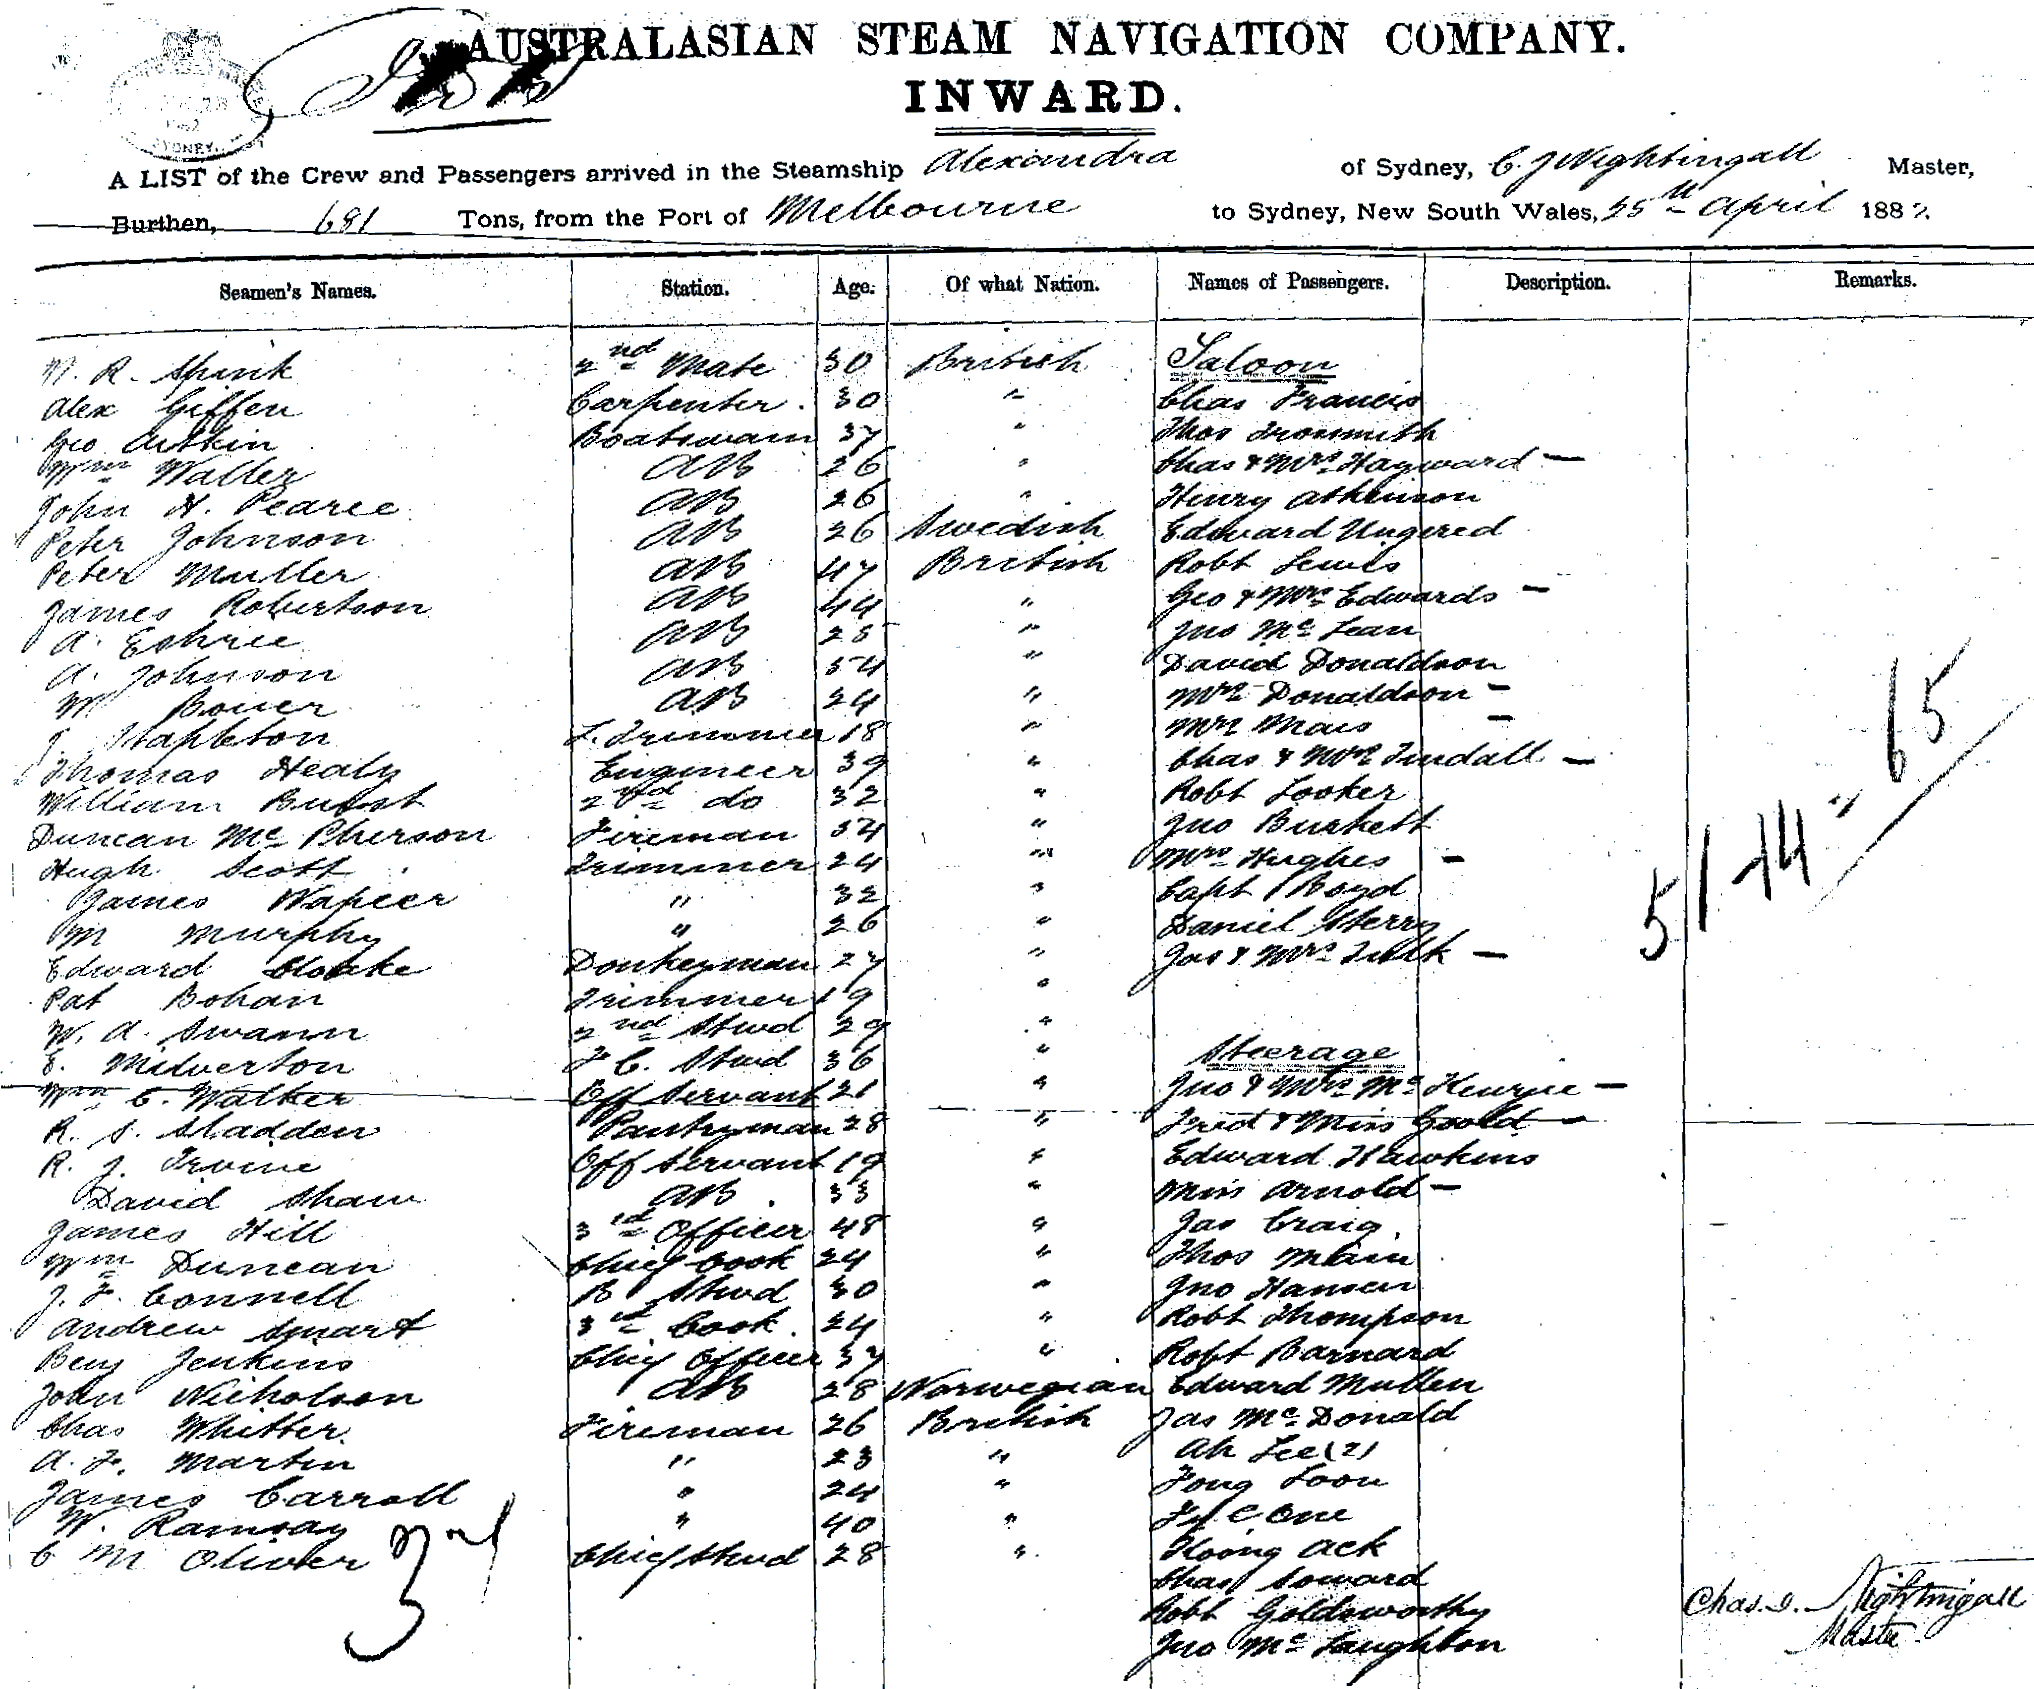 AUSTRALASIAN STEAM NAVIGATION COMPANY.
INWARD.
SYDNEY
A LIST of the Crew and Passengers arrived in the Steamship Alexandra of Sydney, C. J Nightingall Master,
Burthen, 681 Tons, from the Port of Melbourne to Sydney, New South Wales, 25th April 1882
Seamen's Names. Station. Age. Of what Nation. Names of Passengers. Description. Remarks.
R. Spink 2nd Mate 30 British Saloon
Alex Giffen Carpenter. 30 " Chas Francis
Geo Aitkin Boatswain 37 " Thos Ironsmith
Wm Waller AB 26 " Chas & Mrs Hayward —
John H. Pearce AB 26 " Henry Atkinson
Peter Johnson AB 26 Swedish Edward Ungered
Peter Muller AB 47 British Robt Lewis
James Robertson AB 44 " Geo & Mrs Edwards —
A. Eshree AB 25 " Jno Mc Lean
A. Johnson AB 34 " David Donaldson
W Bower AB 24 " Mrs Donaldson —
J. Stapleton L. Trimmer 18 " Mrs Mais —
Thomas Healy Engineer 39 " Chas & Mrs Tindall —
William Buist 2nd do 32 " Robt Looker
Duncan Mc Pherson Fireman 34 " Jno Burkett
Hugh Scott Trimmer 24 " Mrs Hughes —
James Napier " 32 " Capt Boyd
M Murphy " 26 " Daniel Sherry
Edward Cloake Donkeyman 27 " Jas & Mrs Tulk —
Pat Bohan Trimmer 19 "
W. A. Swann 2nd Stwd 29 "
E. Milverton F C. Stwd 36 " Steerage
Wm C. Walker Off Servant 21 " Jno & Mrs Mc Henrie —
R. S. Sladden Pantryman 28 " Fred & Miss Goold —
R. J. Irvine Off Servant 19 " Edward Hawkins
David Shaw AB 33 " Miss Arnold —
James Hill 3rd Officer 48 " Jas Craig
Wm Duncan Chief Cook 24 " Thos Main
J. F. Connell B Stwd 30 " Jno Hansen
Andrew Smart 3rd Cook. 24 " Robt Thompson
Benj Jenkins Chief Officer 37 " Robt Barnard
John Nicholson AB 28 Norwegian Edward Mullen
Chas Whitter. Fireman 26 British Jas Mc Donald
A. F. Martin " 23 " Ah Lee (2)
James Carroll " 24 " Fong Loon
W. Ramsay " 40 " One
C M Oliver Chief Stwd 28 " Hoong Ack
Chas Soward
Robt Goldsworthy
Jno Mc Laughton
51 + 14 " 65
3rd
Chas. J. Nightingall
Master